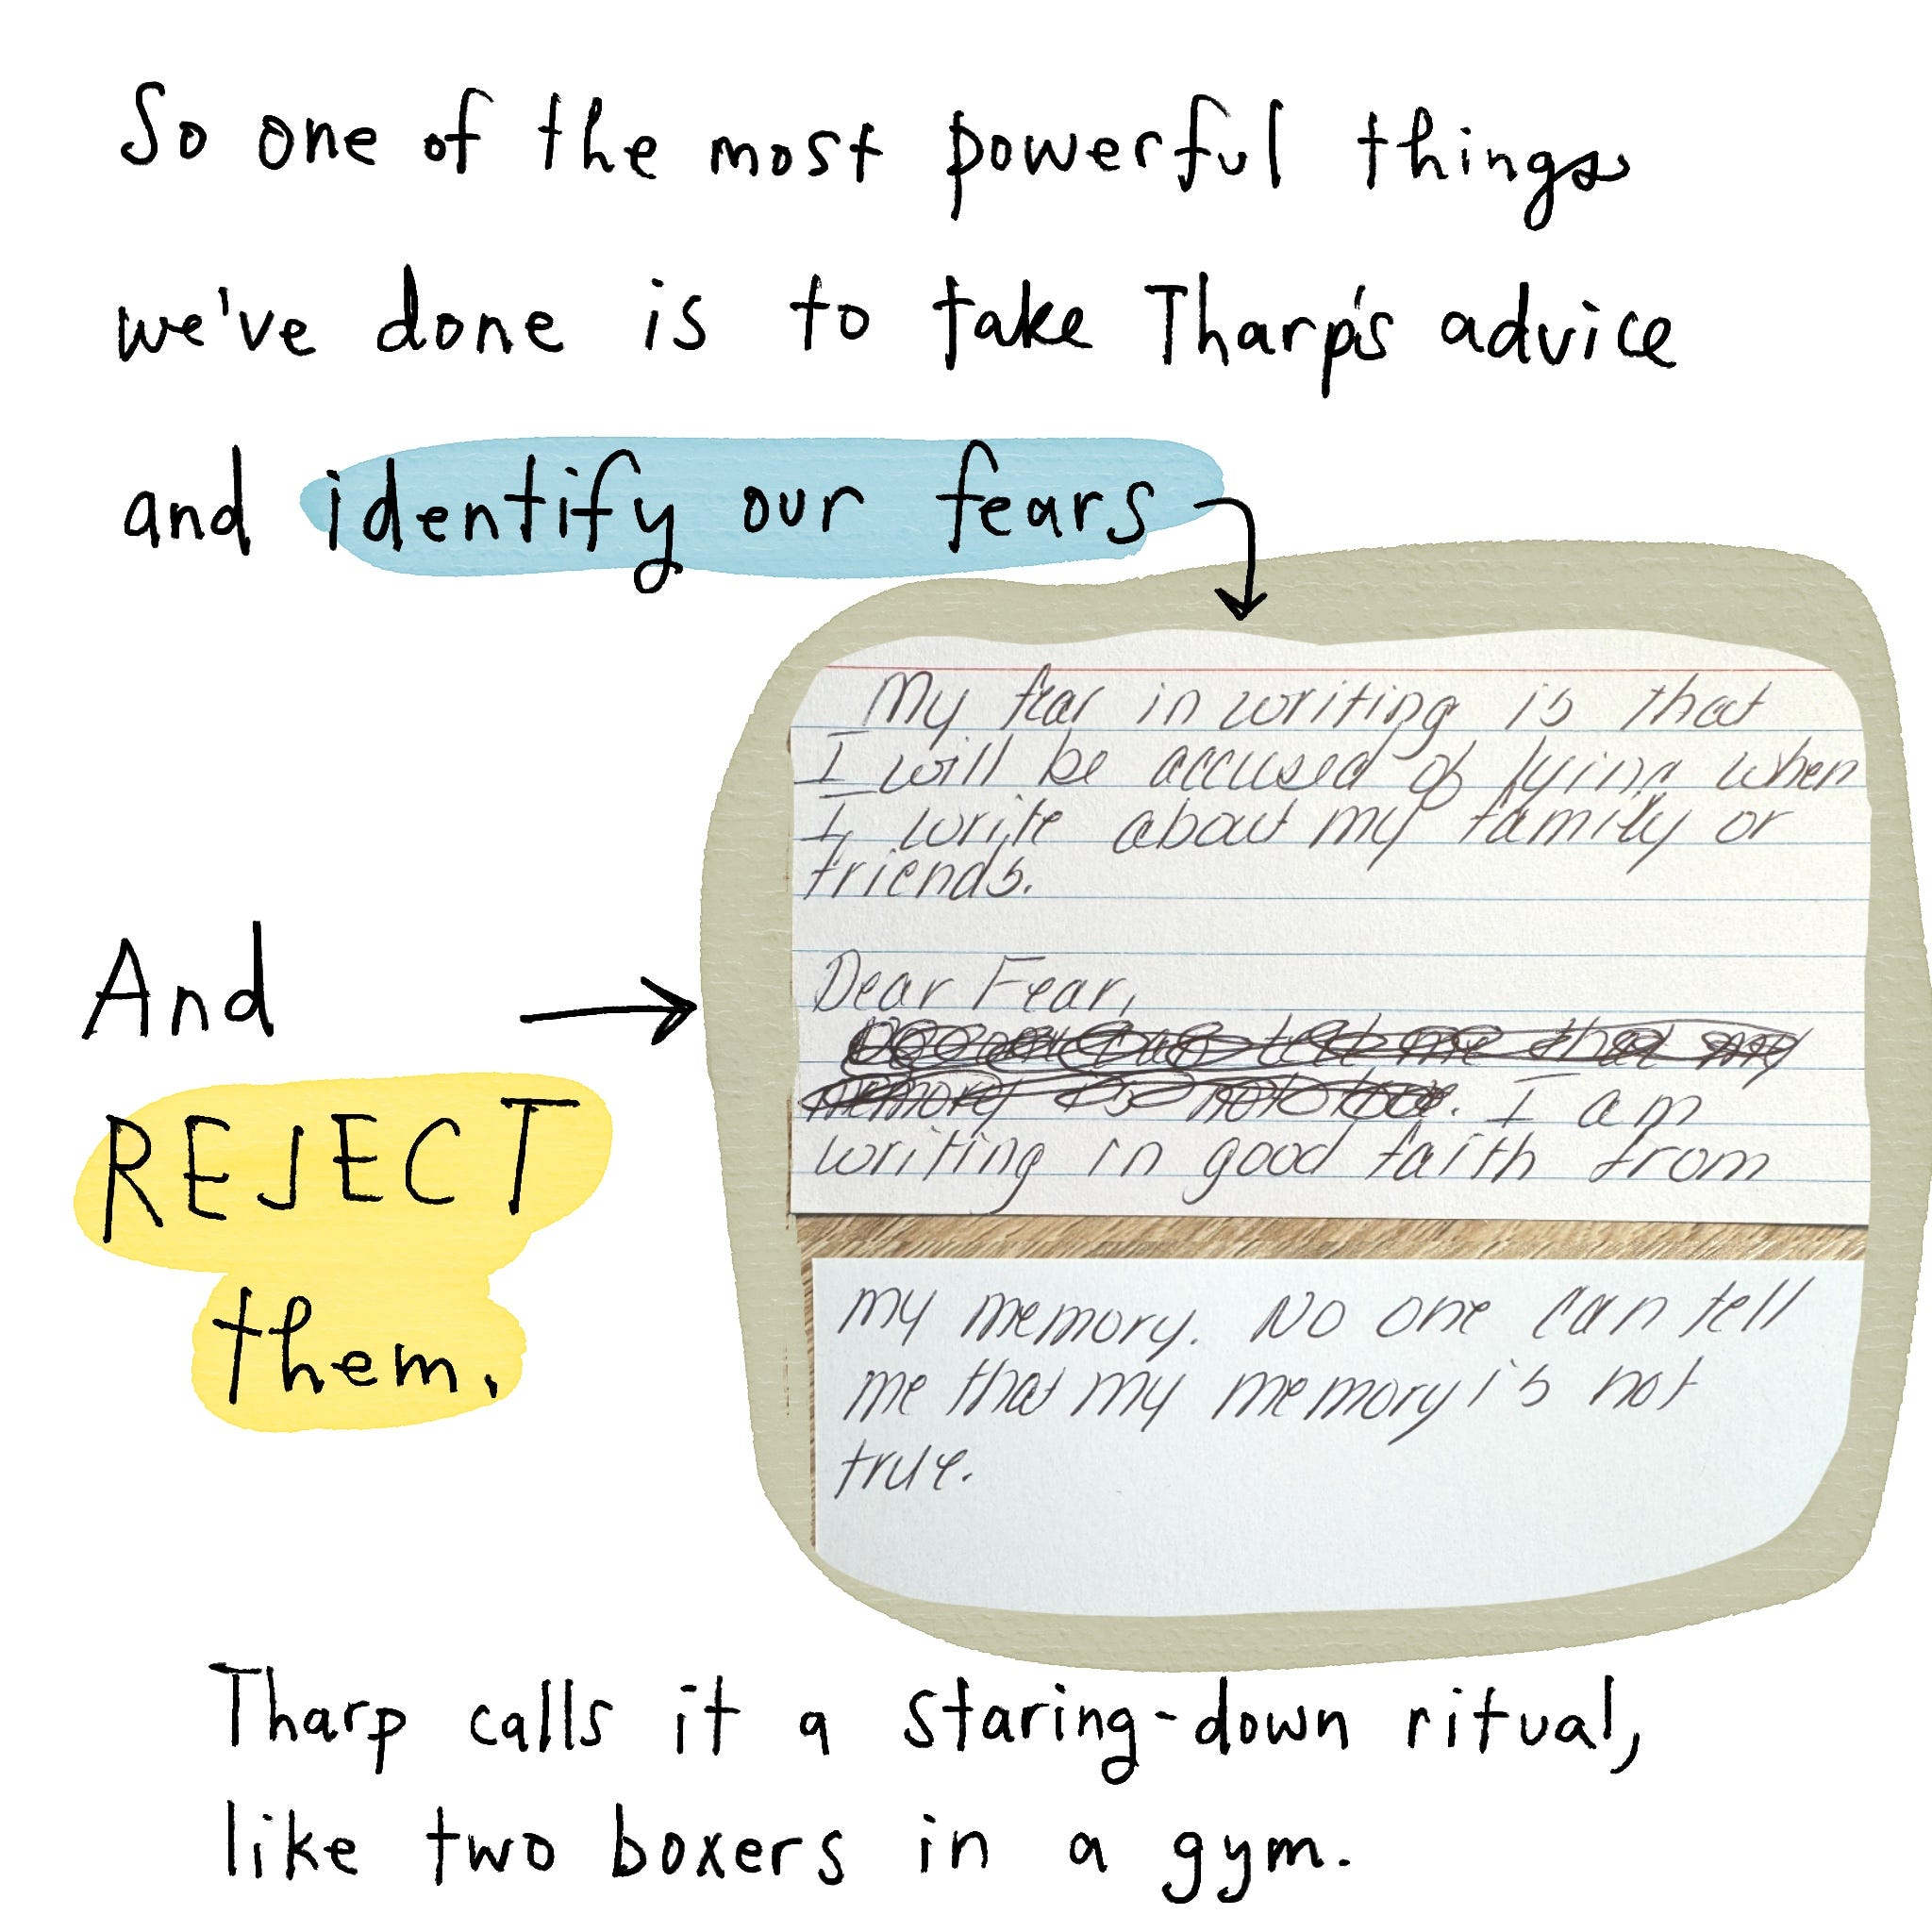 So one of the most powerful things
we've done is to take Tharp's advice
and identify our fears
My fear in writing is that
I will be accused of lying when
I write about my family or
friends.
And
REJECT
them.
Dear Fear,
No one can tell me that my
memory is not true. I am
writing in good faith from
my memory. No one can tell
me that my memory is not
true.
Tharp calls it a staring-down ritual,
like two boxers in a gym.